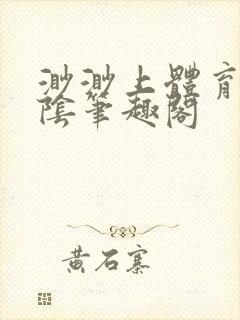 渺渺上體育
陰筆趣閣
黃石寨